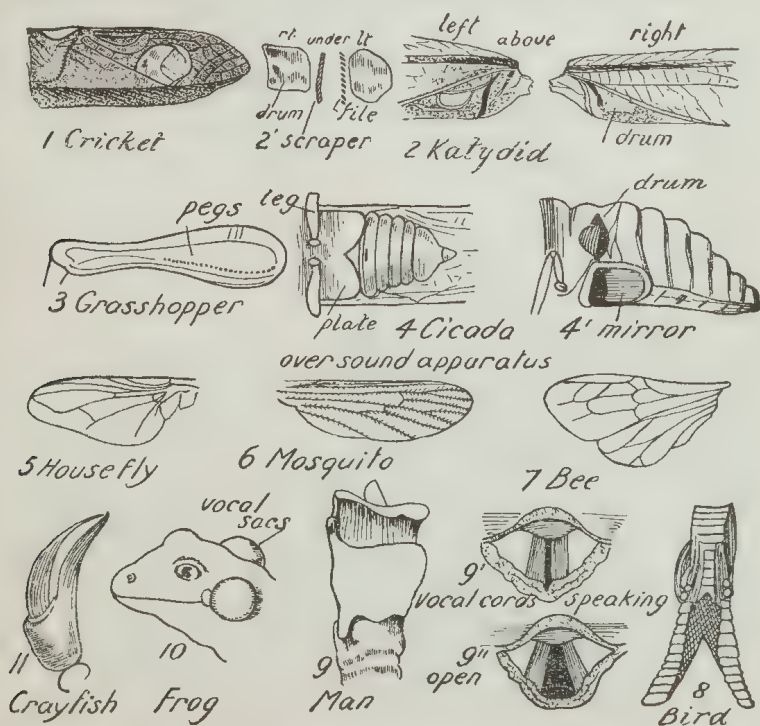 rt. under lt
left above right
drum file
drum
1 Cricket 2' scraper 2 Katydid
pegs leg drum
3 Grasshopper
plate 4 Cicada 4' mirror
over sound apparatus
5 Housefly 6 Mosquito 7 Bee
vocal
sacs
9'
vocal cords speaking
11 10 9 9"
open
8
Crayfish Frog Man Bird